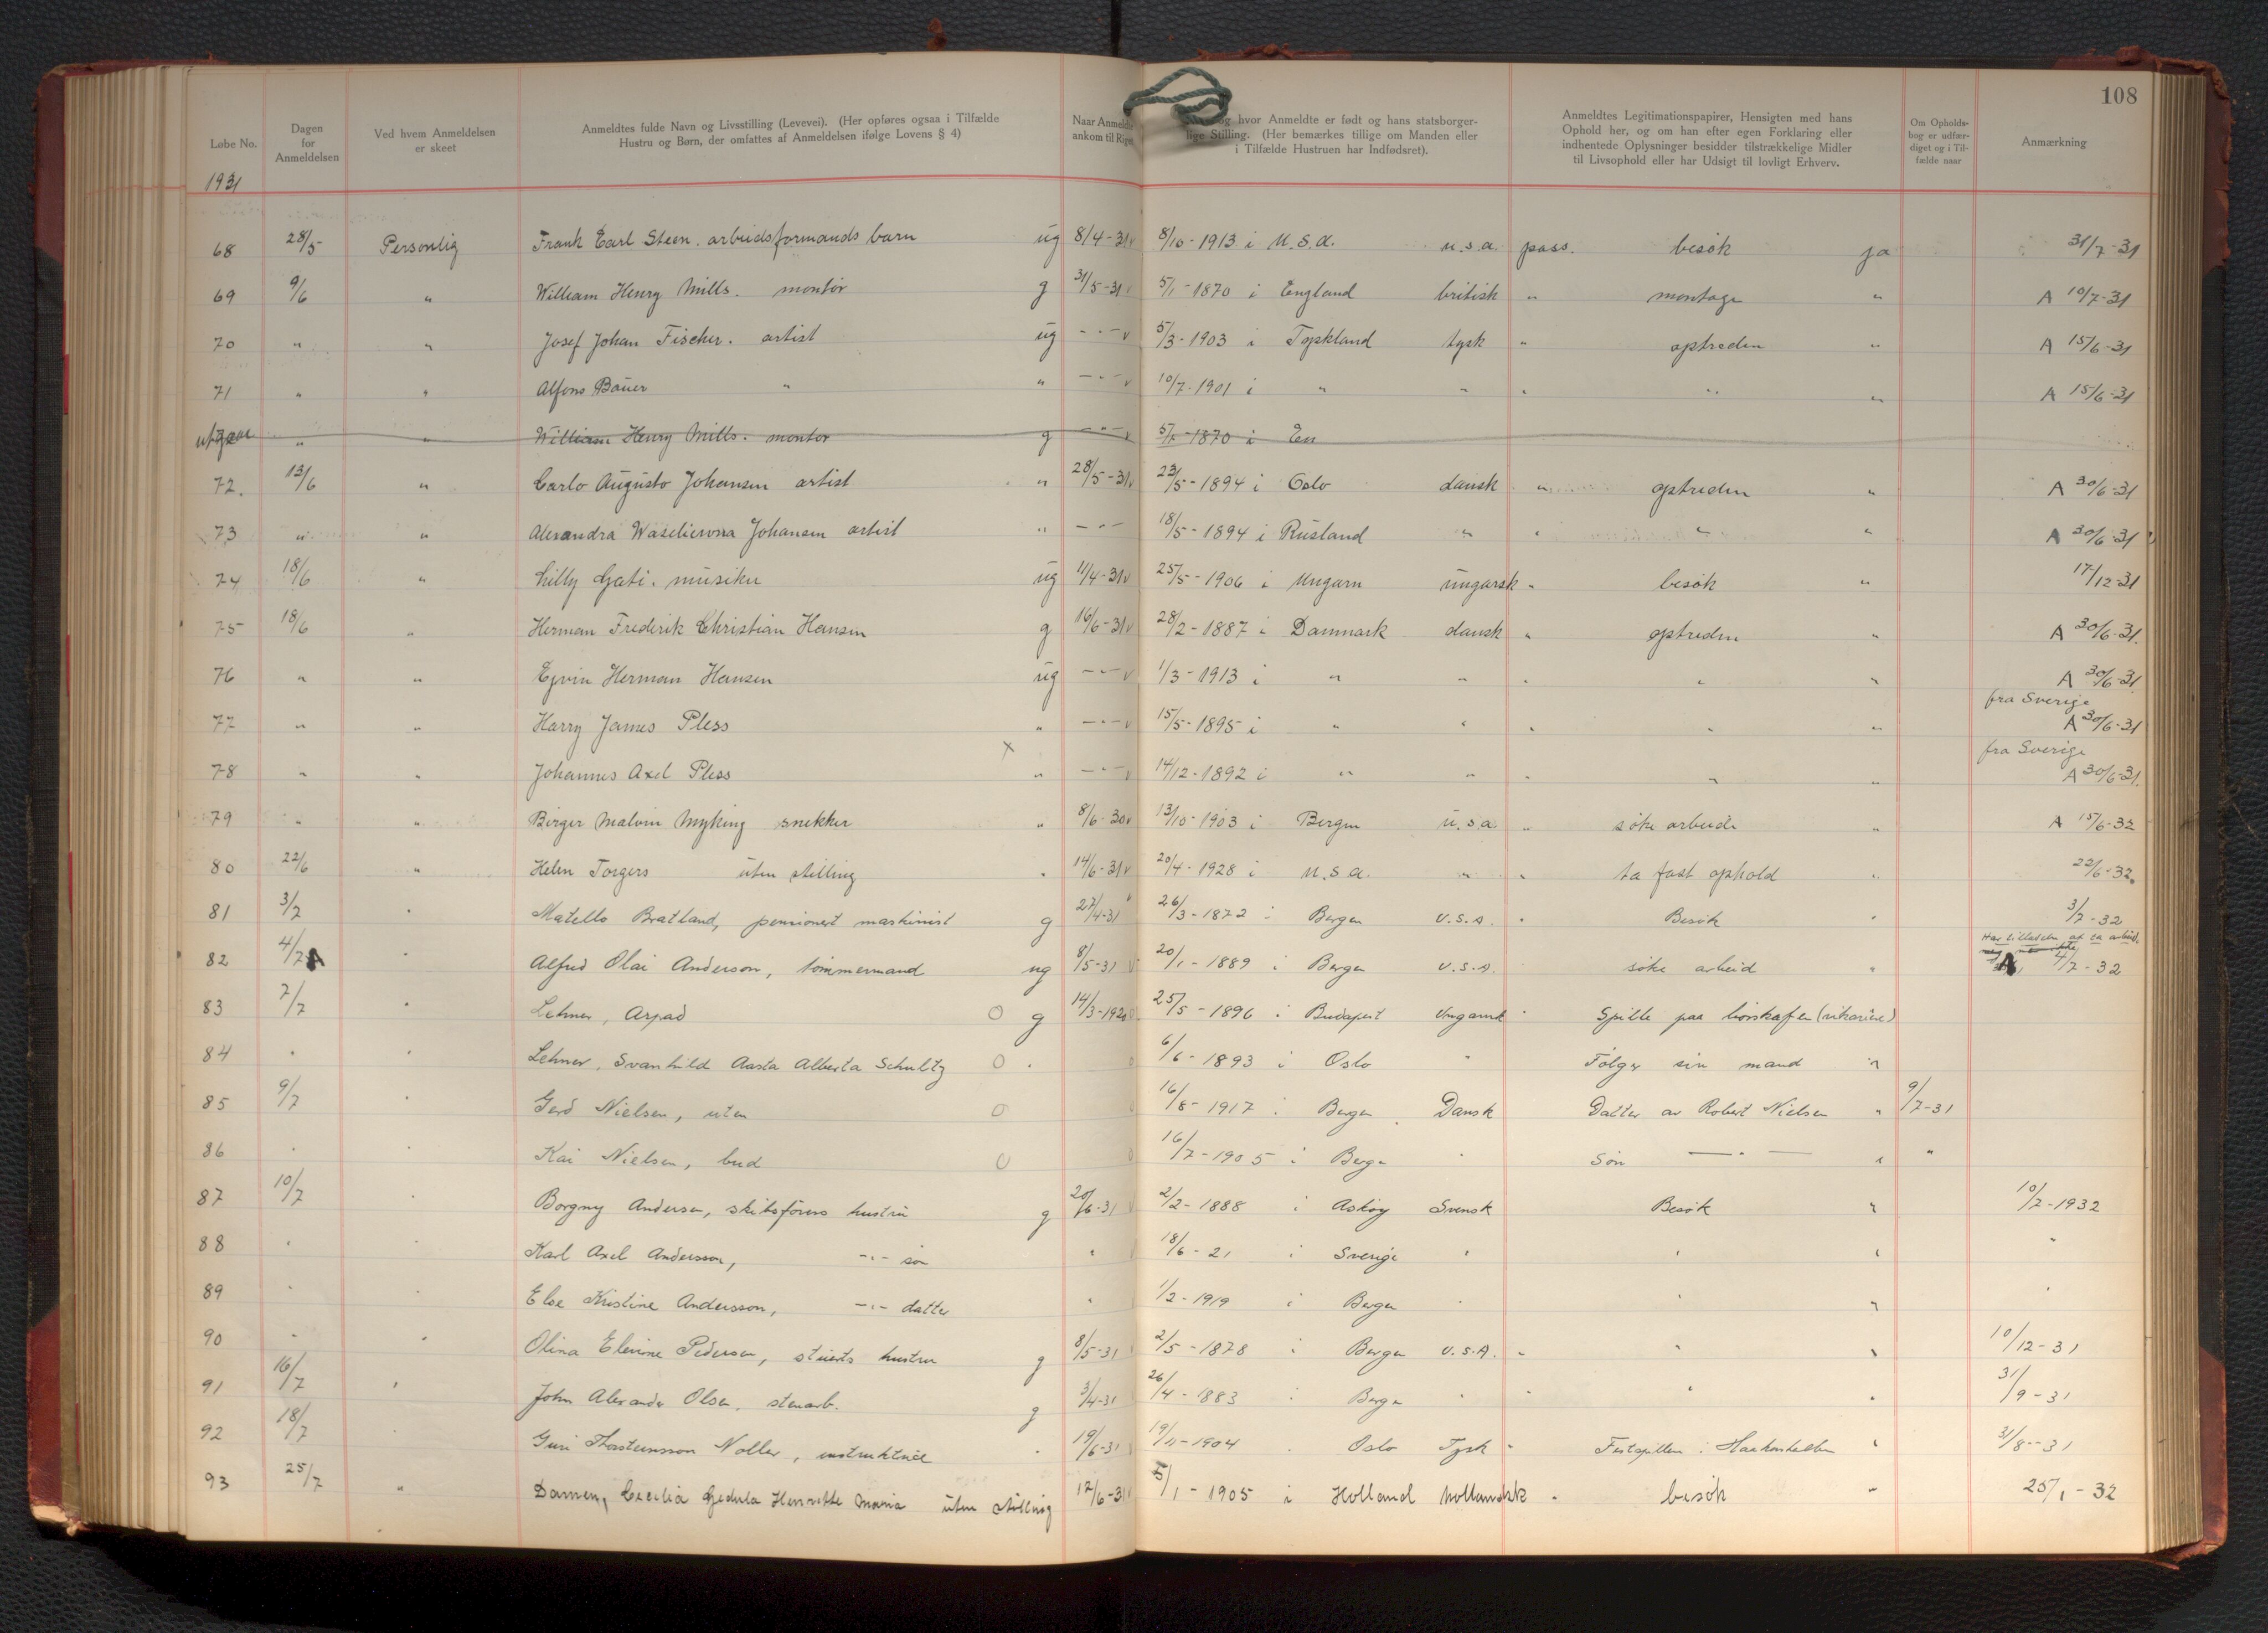 108
Løbe No.
Dagen for Anmeldelsen
Ved hvem Anmeldelsen er skeet
Anmeldtes fulde Navn og Livsstilling (Levevei). (Her opføres ogsaa i Tilfælde Hustru og Børn, der omfattes af Anmeldelsen ifølge Lovens § 4)
Naar Anmeldte ankom til Riget
og hvor Anmeldte er født og hans statsborgerlige Stilling. (Her bemærkes tillige om Manden eller i Tilfælde Hustruen har Indfødsret).
Anmeldtes Legitimationspapirer, Hensigten med hans Ophold her, og om han efter egen Forklaring eller indhentede Oplysninger besidder tilstrækkelige Midler til Livsophold eller har Udsigt til lovligt Erhverv.
Om Opholdsbog er udfærdiget og i Tilfælde naar
Anmærkning
1931
68 28/5 Personlig Frank Earl Steen. arbeidsformands barn ug 8/4-31 v 8/10-1913 i U.S.A. u.s.a. pass. besøk ja 31/7-31
69 9/6 " William Henry Mills. montør g 31/5-31 v 5/1-1870 i England britisk " montage " A 10/7-31
70 " " Josef Johan Fischer. artist ug - " - v 5/3-1903 i Tyskland tysk " optreden " A 15/6-31
71 " " Alfons Bauer " " - " - v 10/7-1901 i " " " " " A 15/6-31
utgaar " " William Henry Mills. montør g - " - v 5/1-1870 i En
72. 13/6 " Carlo Augusto Johansen artist " 28/5-31 v 23/5-1894 i Oslo dansk " optreden " A 30/6-31
73 " " Alexandra Waselierona Johansen artist " - " - 18/5-1894 i Rusland " " " " A 30/6-31
74 18/6 " Lilly Gati. musiker ug 11/4-31 v 25/5-1906 i Ungarn ungarsk " besøk " 17/12-31
75 18/6 " Herman Frederik Christian Hansen g 16/6-31 v 28/2-1887 i Danmark dansk " optreden " A 30/6-31.
76 " " Ejvin Herman Hansen ug - " - v 1/3-1913 i " " " " " A 30/6-31
fra Sverige
77 " " Harry James Pless " - " - v 15/5-1895 i " " " " " A 30/6-31
fra Sverige
78 " " Johannes Axel Pless x " - " - v 14/12-1892 i " " " " " A 30/6-31.
79 " " Birger Malvin Myking snekker " 8/6-30 v 13/10-1903 i Bergen u.s.a. " søke arbeide " A 15/6-32
80 22/6 " Helen Torgers uten stilling " 14/6-31 v 20/4-1928 i U.S.A. " " ta fast ophold " 22/6-32.
81 3/7 " Matello Bratland, pensionert maskinist g 27/4-31 26/3-1872 i Bergen U.S.A. " Besøk " 3/7-32
Har tilladelse at ta arbeid.
82 4/7 A " Alfred Olai Anderson, tømmermand ug 8/5-31 v 20/1-1889 i Bergen U.S.A. søke arbeid " A 4/7-32
83 7/7 " Lehner, Arpad O g 14/3-1920 25/5-1896 i Budapest Ungarnsk " Spille paa børskafeen (vikariere)
84 " " Lehner, Svanhild Aasta Alberta Schultz O " 6/6-1893 i Oslo " Følger sin mand "
85 9/7 " Gerd Nielsen, uten O 16/8-1917 i Bergen Dansk Datter av Robert Nielsen " 9/7-31
86 " Kai Nielsen, bud O 16/7-1905 i Bergen " Søn — " — " "
87 10/7 " Borgny Andersen, skibsførers hustru g 20/6-31 v 2/2-1888 i Askøy Svensk Besøk " 10/7-1932
88 " " Karl Axel Andersson, - " - søn " 18/6-21 i Sverige " " " "
89 " " Else Kristine Andersson, - " - datter " 1/2-1919 i Bergen " " " "
90 " " Olina Elevine Pedersen, stuerts hustru g 8/5-31 2/5-1878 i Bergen U.S.A. " " " 10/12-31
91 16/7 " John Alexander Olsen. stenarb. g 3/4-31 26/4-1883 i Bergen " " " " 31/9-31
92 18/7 " Guri Thorsteinsson Noller, instruktrice " 19/6-31 19/11-1904 Oslo Tysk " Festspillene i Haakonshallen " 31/8-31
93 25/7 " Damen, Cecilia Gedula Henriette Maria uten stilling 12/6-31 v 5/1-1905 i Holland hollandsk " besøk " 25/1-32